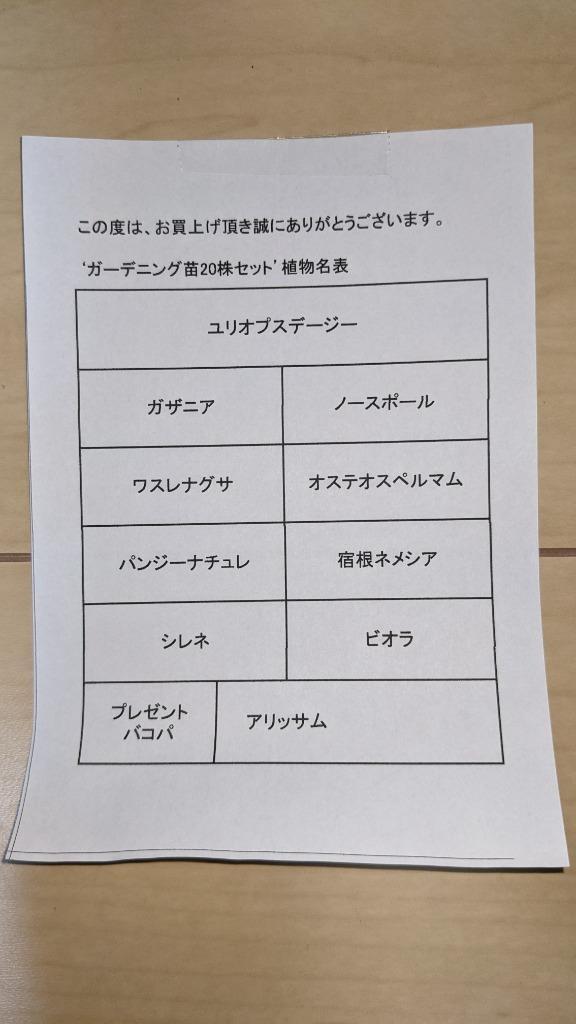 この度は、お買上げ頂き誠にありがとうございます。
‘ガーデニング苗20株セット’植物名表
ユリオプスデージー
ガザニア
ノースポール
ワスレナグサ
オステオスペルマム
パンジーナチュレ
宿根ネメシア
シレネ
ビオラ
プレゼント
バコパ
アリッサム